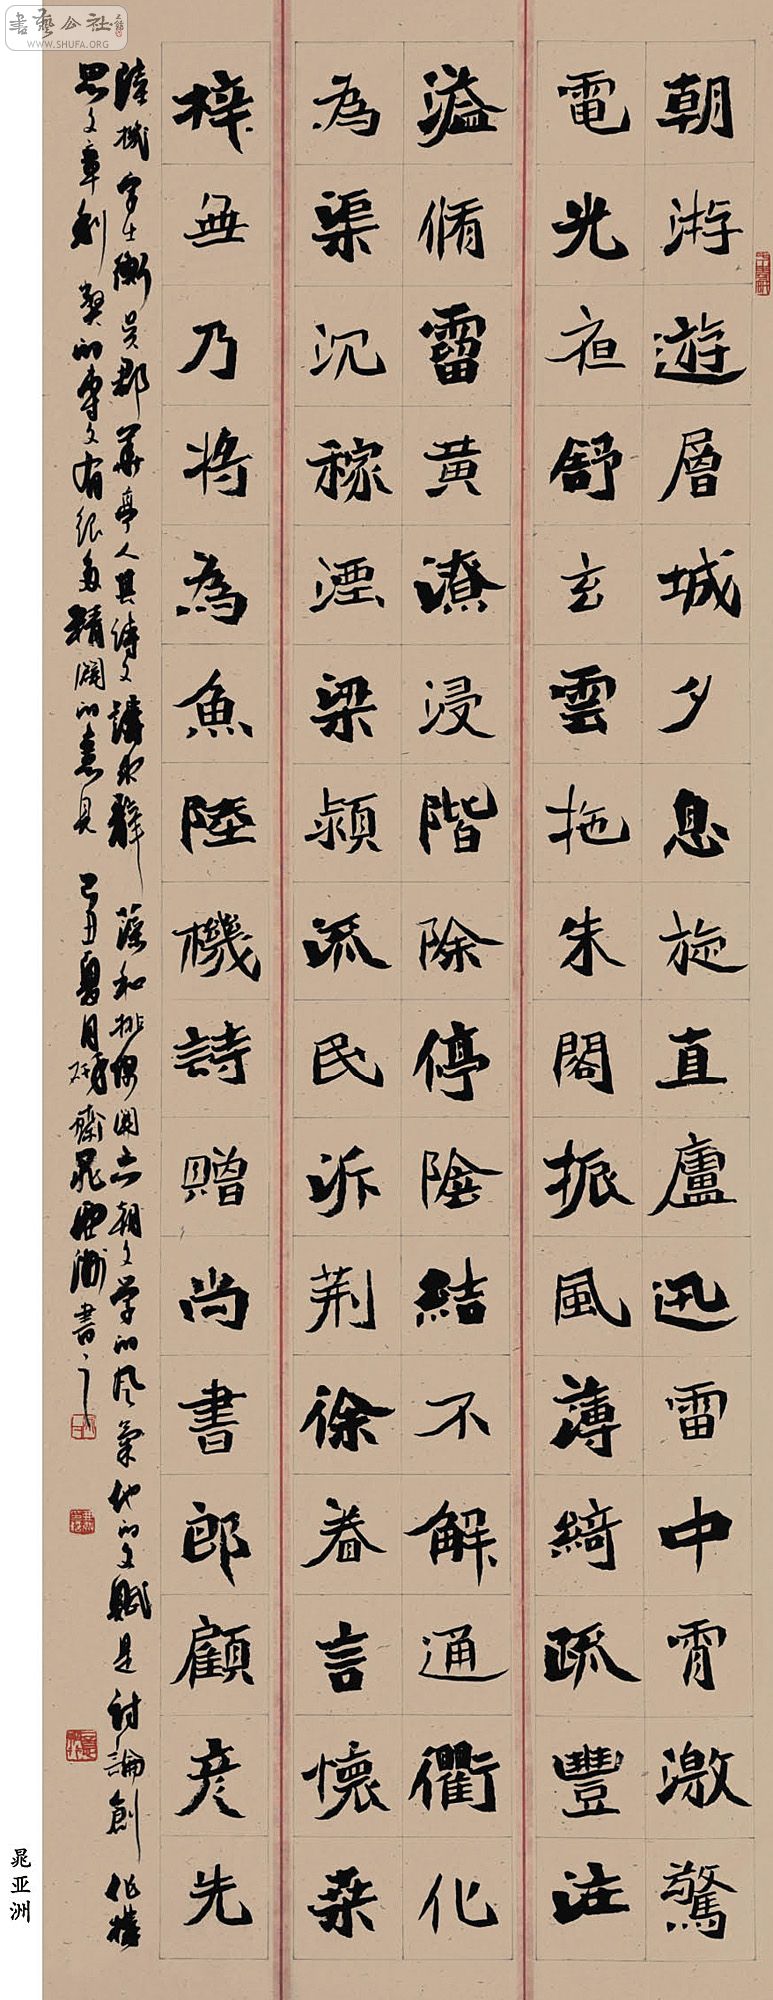 書藝公社
WWW.SHUFA.ORG
朝游遊層城夕息旋直廬迅雷中霄激驚
電光夜舒玄雲拖朱閣振風薄綺疏豐注
溢脩霤黄潦浸階除停陰結不解通衢化
為渠沉稼湮梁潁流民泝荆徐眷言懷桑
梓無乃将為魚陸機詩贈尚書郎顧彦先
陸機字士衡吴郡華亭人其詩文講求辭藻和排偶開六朝文学的风氣他的文賦是討論創作構
思文章利弊的專文有很多精闢的意見 己丑夏月齋晁亞洲書之
晁亚洲